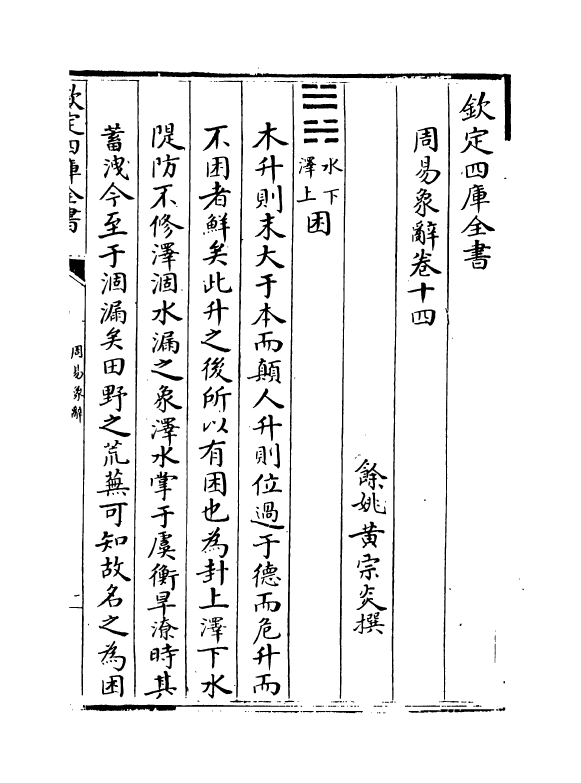 欽定四庫全書
周易象辭卷十四
餘姚黃宗炎撰
䷮水下澤上困
木升則末大于本而顛人升則位過于德而危升而
不困者鮮矣此升之後所以有困也為卦上澤下水
隄防不修澤涸水漏之象澤水掌于虞衡旱潦時其
蓄洩今至于涸漏矣田野之荒蕪可知故名之為困
欽定四庫全書
周易象辭
一